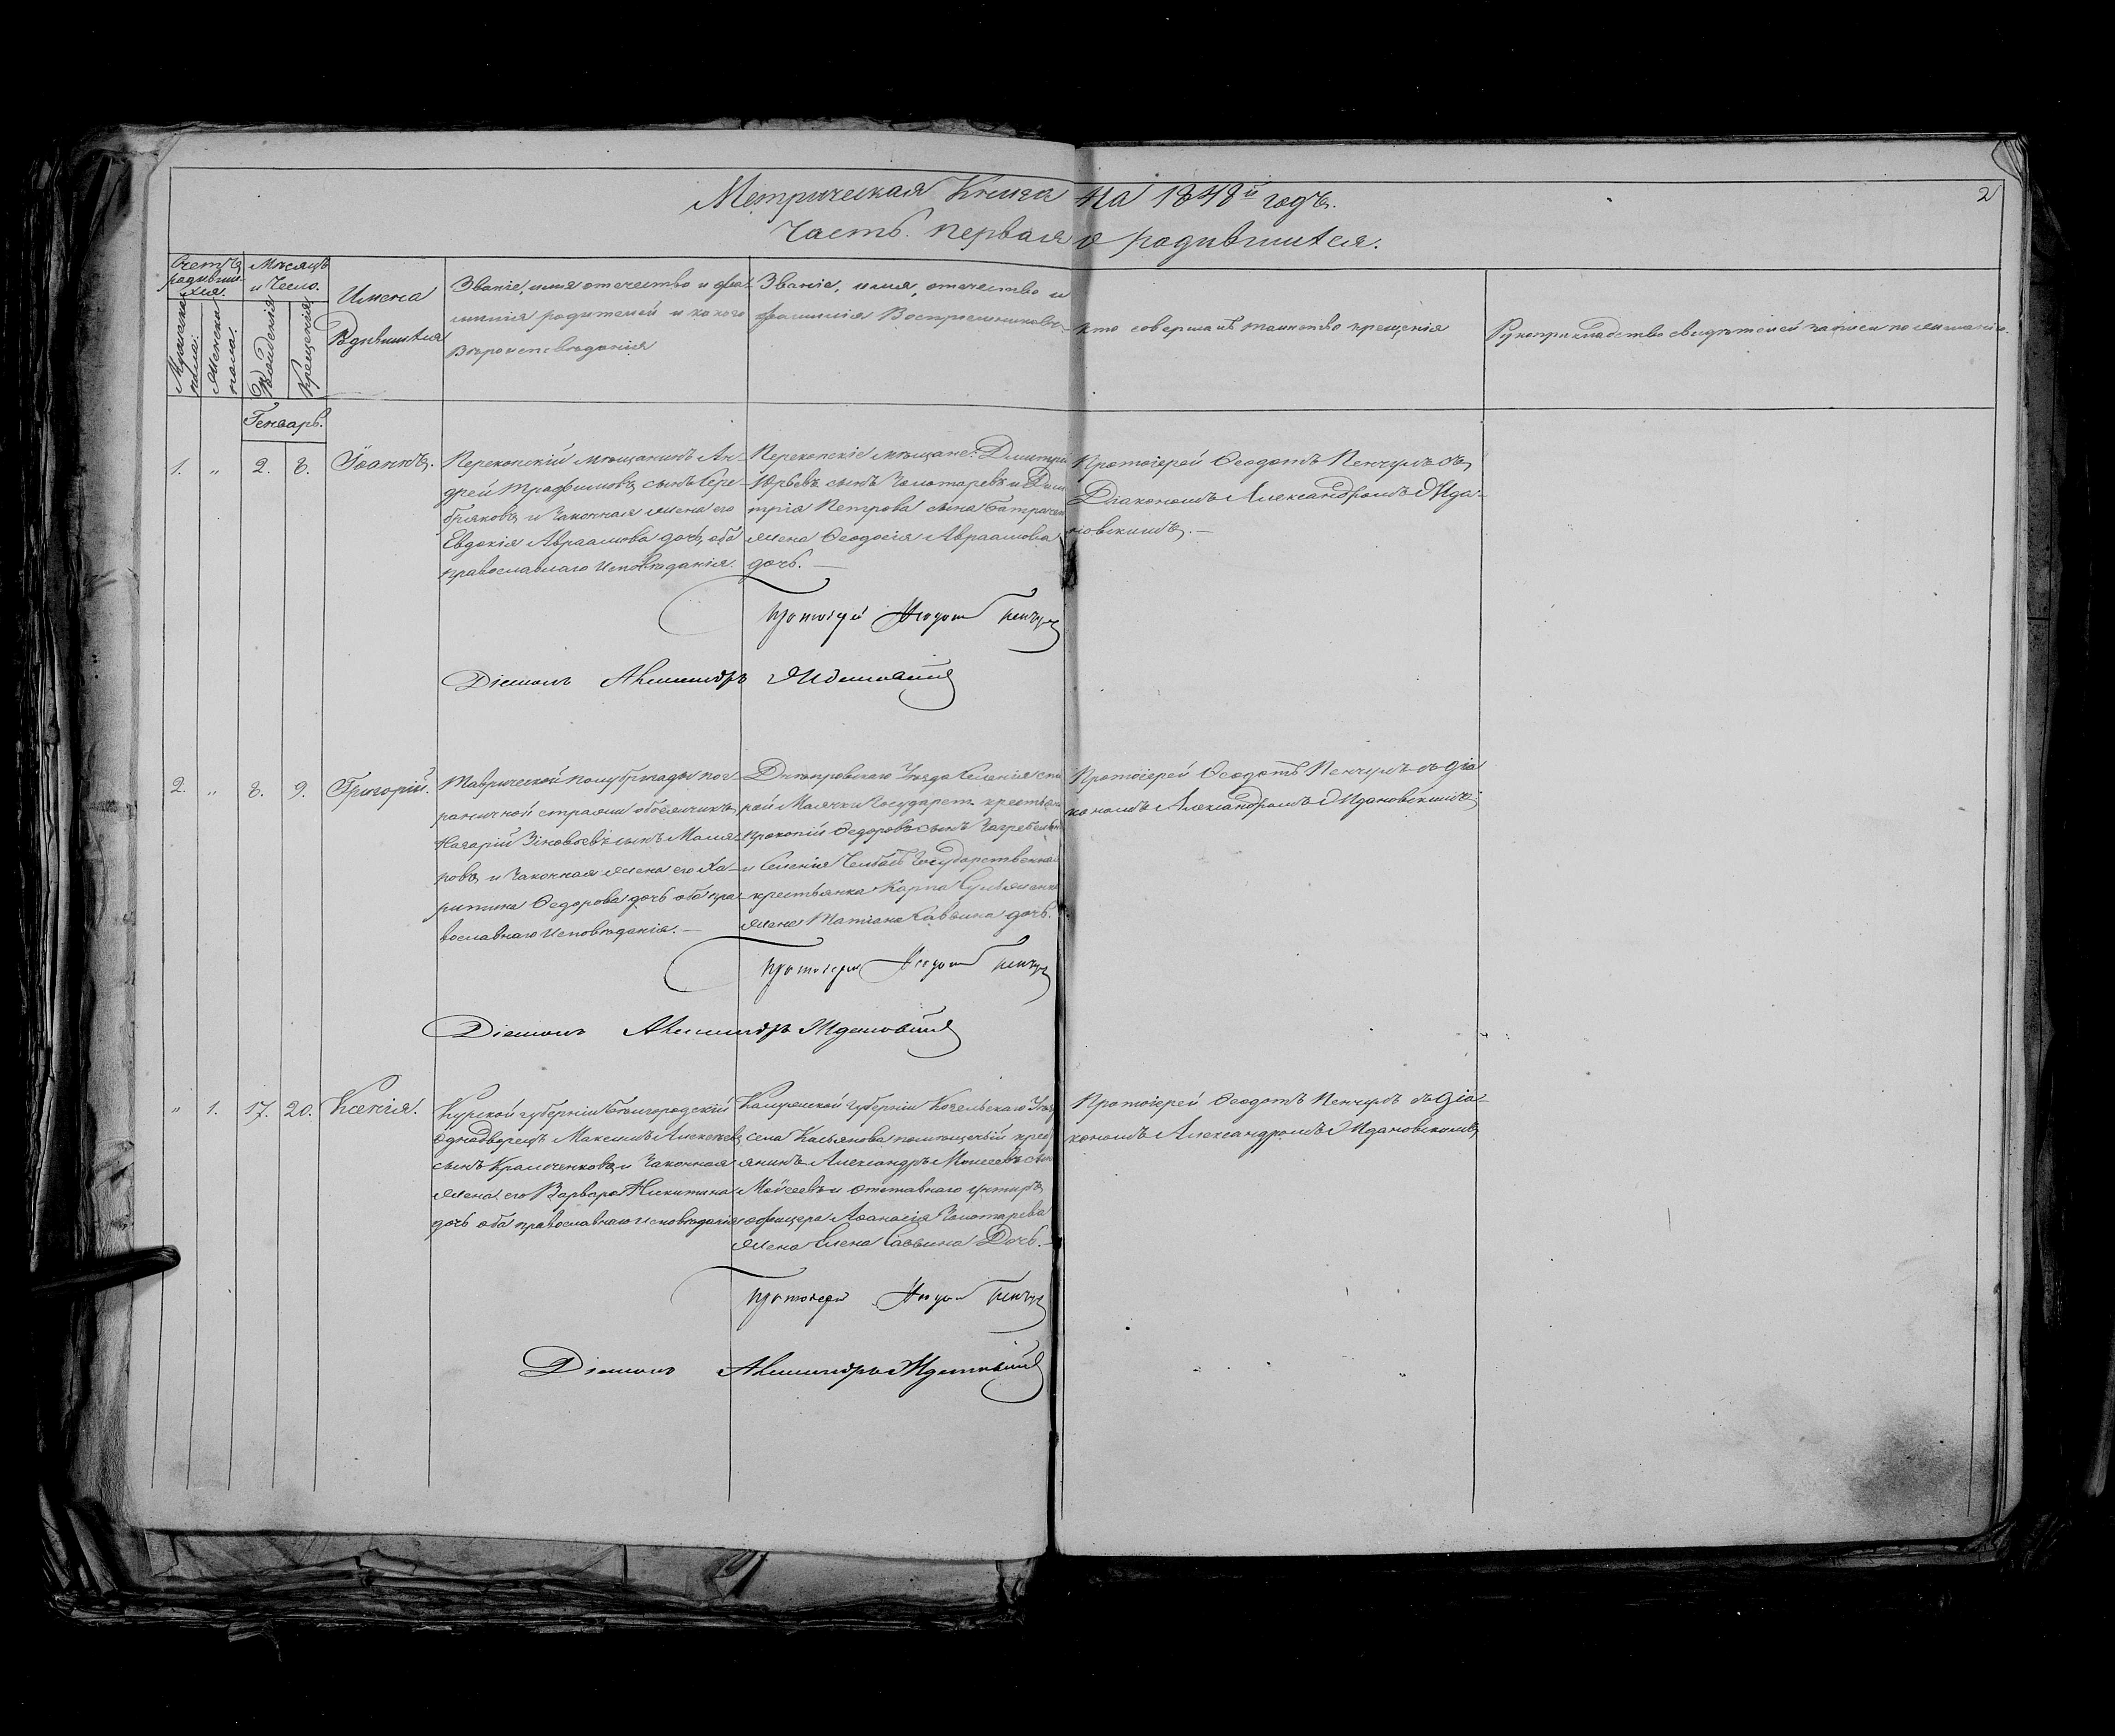 Метрическая Книга на 1848й годъ.
2
Часть первая о родившихся.
Счетъ
родивши-
хся.
Мужеска
пола.
Женска
пола.
Мѣсяцъ
и Число.
Рожденія
Крещенія
Имена
Родившихся
Званіе, имя отечество и фа-
милія родителей и какого
Вѣроисповѣданія
Званіе, имя, отечество и
фамилія Воспріемниковъ
Кто совершалъ таинство крещенія
Рукоприкладство свидѣтелей записи по желанію.
Генварь.
1. " 2. 8. Іоаннъ.
Перекопскій мѣщанинъ Ан-
дрей Трофимовъ сынъ Сере-
бряковъ и законная жена его
Евдокія Авраамова дочь, оба
православнаго Исповѣданія.
Перекопскіе мѣщане: Димитрій
Юрьевъ сынъ Золотаревъ и Дими
трія Петрова сына
жена Ѳеодосія Авраамова
дочь.
Протоіерей Ѳеодотъ Пенчулъ съ
Діакономъ Александромъ Жда-
новскимъ.
Протоіерей Ѳеодотъ Пенчулъ
Діаконъ Александръ Ждановскій
2. " 8. 9. Григорій.
Таврической полубригады пог-
раничной стражи объѣзчикъ
Назарій Зиновьевъ сынъ Маля-
ровъ и законная жена его Ха-
ритина Ѳедорова дочь оба пра-
вославнаго Исповѣданія.
Днѣпровскаго Уѣзда Селенія ста
рой Маячки Государст. крестьян
Прокопій Ѳедоровъ сынъ
и Селенія Чембасъ Государственная
крестьянка Карпа
жена Татіана Саввина дочь.
Протоіерей Ѳеодотъ Пенчулъ съ Діа
кономъ Александромъ Ждановскимъ
Протоіерей Ѳеодотъ Пенчулъ
Діаконъ Александръ Ждановскій
" 1. 17. 20. Ксенія.
Курской губерніи Бѣлгородскій
Однодворецъ Максимъ Алексѣевъ
сынъ Крамчениковъ и законная
жена его Варвара Никитина
дочь оба православнаго исповѣданія
Калужской губерніи Козельскаго Уѣзд
села Касьянова помѣщичій крест
янинъ Александръ Моисеевъ сынъ
Моисеевъ и отставнаго унтеръ
офицера Аѳанасія Золотарева
жена Елена Саввина Дочь.
Протоіерей Ѳеодотъ Пенчулъ съ Діа-
кономъ Александромъ Ждановскимъ
Протоіерей Ѳеодотъ Пенчулъ
Діаконъ Александръ Ждановскій